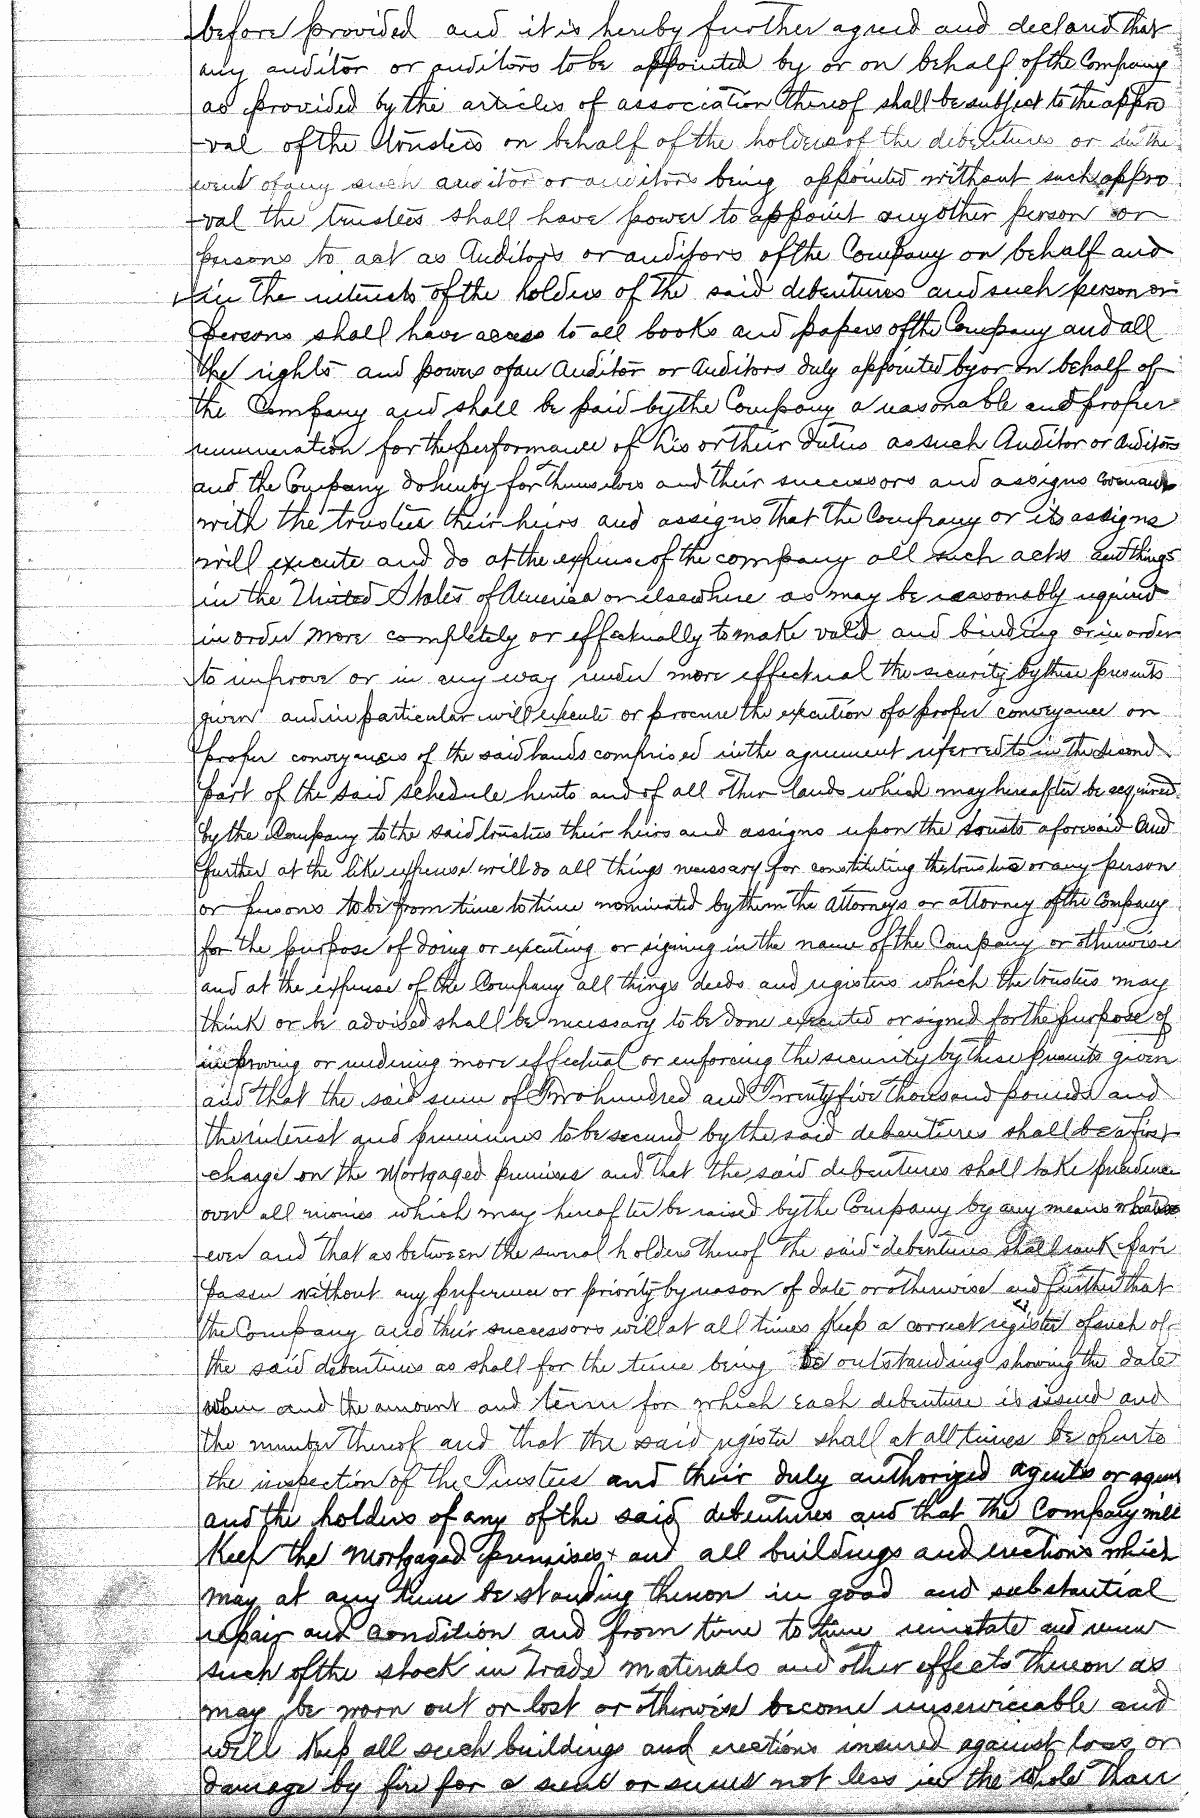 before provided and it is hereby further agreed and declared that
any auditor or auditors to be appointed by or on behalf of the Company
as provided by the articles of association thereof shall be subject to the appro
-val of the trustees on behalf of the holders of the debentures or in the
event of any such auditor or auditors being appointed without such appro
-val the trustees shall have power to appoint any other person or
persons to act as Auditors or auditors of the Company on behalf and
in the interests of the holders of the said debentures and such person or
persons shall have access to all books and papers of the Company and all
the rights and powers of an Auditor or Auditors duly appointed by or on behalf of
the Company and shall be paid by the Company a reasonable and proper
remuneration for the performance of his or their duties as such Auditor or Auditors
and the Company do hereby for themselves and their successors and assigns covenant
with the trustees their heirs and assigns that the Company or its assigns
will execute and do at the expense of the company all such acts and things
in the United States of America or elsewhere as may be reasonably required
in order more completely or effectually to make valid and binding or in order
to improve or in any way render more effectual the security by these presents
given and in particular will execute or procure the execution of a proper conveyance or
proper conveyances of the said lands comprised in the agreement referred to in the second
part of the said schedule hereto and of all other lands which may hereafter be acquired
by the Company to the said trustees their heirs and assigns upon the trusts aforesaid And
further at the like expense will do all things necessary for constituting the trustees or any person
or persons to be from time to time nominated by them the Attorneys or attorney of the Company
for the purpose of doing or executing or signing in the name of the Company or otherwise
and at the expense of the Company all things deeds and registers which the trustees may
think or be advised shall be necessary to be done executed or signed for the purpose of
improving or rendering more effectual or enforcing the security by these presents given
and that the said sum of Two hundred and Twenty five thousand pounds and
the interest and premiums to be secured by the said debentures shall be a first
charge on the Mortgaged premises and that the said debentures shall take precedence
over all monies which may hereafter be raised by the Company by any means whatso
ever and that as between the several holders thereof the said debentures shall rank pari
passu without any preference or priority by reason of date or otherwise and further that
the Company and their successors will at all times Keep a correct register of such of
the said debentures as shall for the time being be outstanding showing the date
when and the amount and term for which each debenture is issued and
the number thereof and that the said register shall at all times be open to
the inspection of the Trustees and their duly authorized agents or agent
and the holders of any of the said debentures and that the Company will
Keep the Mortgaged premises and all buildings and erections which
may at any time be standing thereon in good and substantial
repair and condition and from time to time reinstate and renew
such of the stock in Trade materials and other effects thereon as
may be worn out or lost or otherwise become unserviceable and
will Keep all such buildings and erections insured against loss or
damage by fire for a sum or sums not less in the whole than